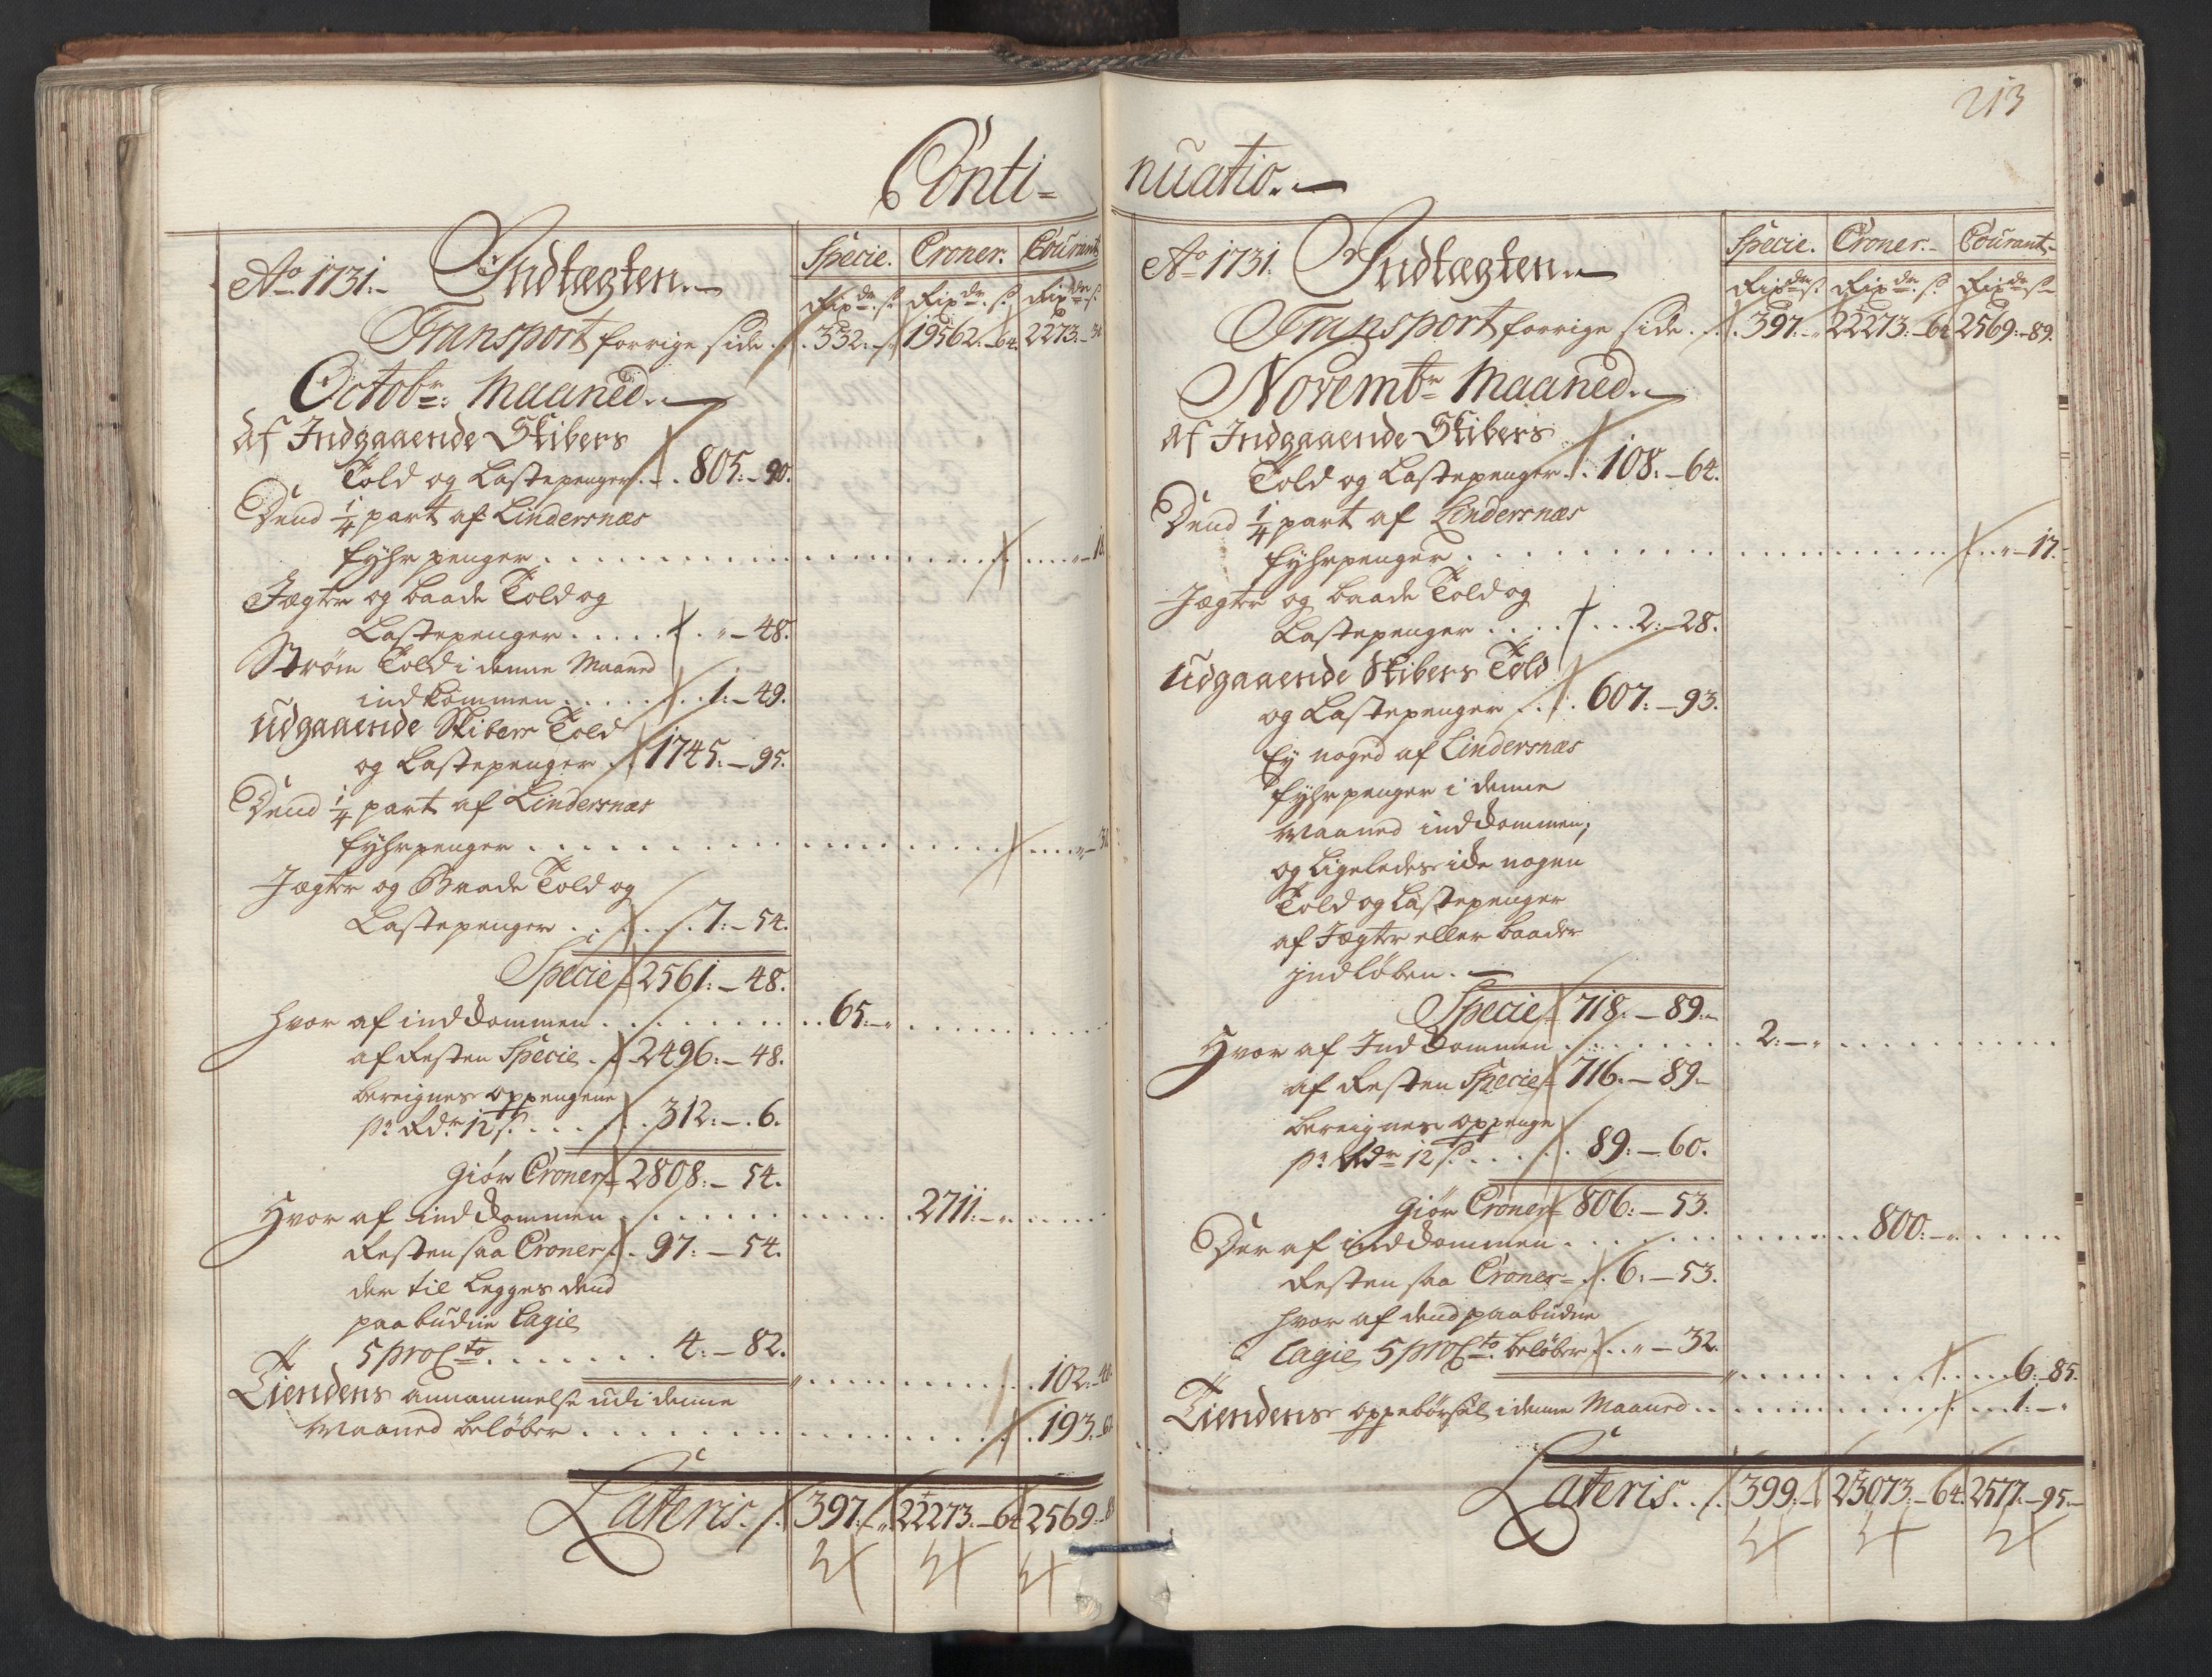 213
Conti=
nuatio.
Specie. Croner. Courant
Ao 1731. Indtægten.
Rixdr. s. Rixdr. s. Rixdr. s.
Transport forrige side . . 332:-" 19562:-64. 2273:-
Octobr: Maaned.
Af Indgaaende Skibers
Told og Lastepenger . . 805:-90.
Dend 1/4 part af Lindersnæs
fyhrpenger . . . . "-
Jægter og baade Told og
Lastepenger . . . . . "-48.
Strøm Told i denne Maaned
indkommen . . . . . 1:-49.
Udgaaende Skibers Told
og Lastepenger . 1745:-95.
Dend 1/4 part af Lindersnæs
fyhrpenger . . . . "-
Jægter og Baade Told og
Lastepenger . . . . . 7:-54.
Specie= 2561:-48.
Hvor af indkommen . . . . 65:-" . . . .
af Resten Specie . 2496:-48.
bereignes oppengene
pr Rdr 12 s. . . . . 312:-.6.
Giør Croner= 2808:-54.
Hvor af indkommen . . . . 2711:-" . . . .
Resten saa Croner . 97:-54.
der til Legges dend
paabudne Lagie
5 proCto . . . . . . 4:-82.
" . . . . 102:-
Tiendens annammelse udi denne
Maaned beløber . . . . 193:-
Lateris . /. 397:-" 22273:-64 2569:-
Specie. Croner.- Courant-
Ao 1731. Indtægten.
Rixdr s. Rixdr. s. Rixdr s
Transport forrige side . /. 397:-" 22273:-64 2569:-89.
Novembr Maaned.
Af Indgaaende Skibers
Told og Lastepenger . . 108:-64.
Dend 1/4 part af Lindersnæs
fyhrpenger . . . . "-17.
Jægter og baade Told og
Lastepenger . . . . . . . 2:-28.
Udgaaende Skibers Told
og Lastepenger . . . 607:-93.
Ey noged af Lindersnæs
fyhrpenger i denne
Maaned indkommen;
og Ligeledes icke nogen
Told og Lastepenger
af Jægter eller baader
indløben.
Specie= 718:-89.-
Hvor af Indkommen . . . . 2:-" . . . .
af Resten Specie= 716:-89.-
bereignes oppenge
pr Rdr 12 s. . . . . 89:-60.
Giør Croner= 806:-53.
Der af indkommen . . . . 800:-" . . . .
Resten saa Croner= . 6:-53.
Hvor af dend paabudne
Lagie 5 proCto. beløber . . "-32.
" . . . . 6:-85.
Tiendens oppebørsel i denne Maaned . . . . 1:-"
Lateris . /. 399:- 23073:-64. 2577:-95.-